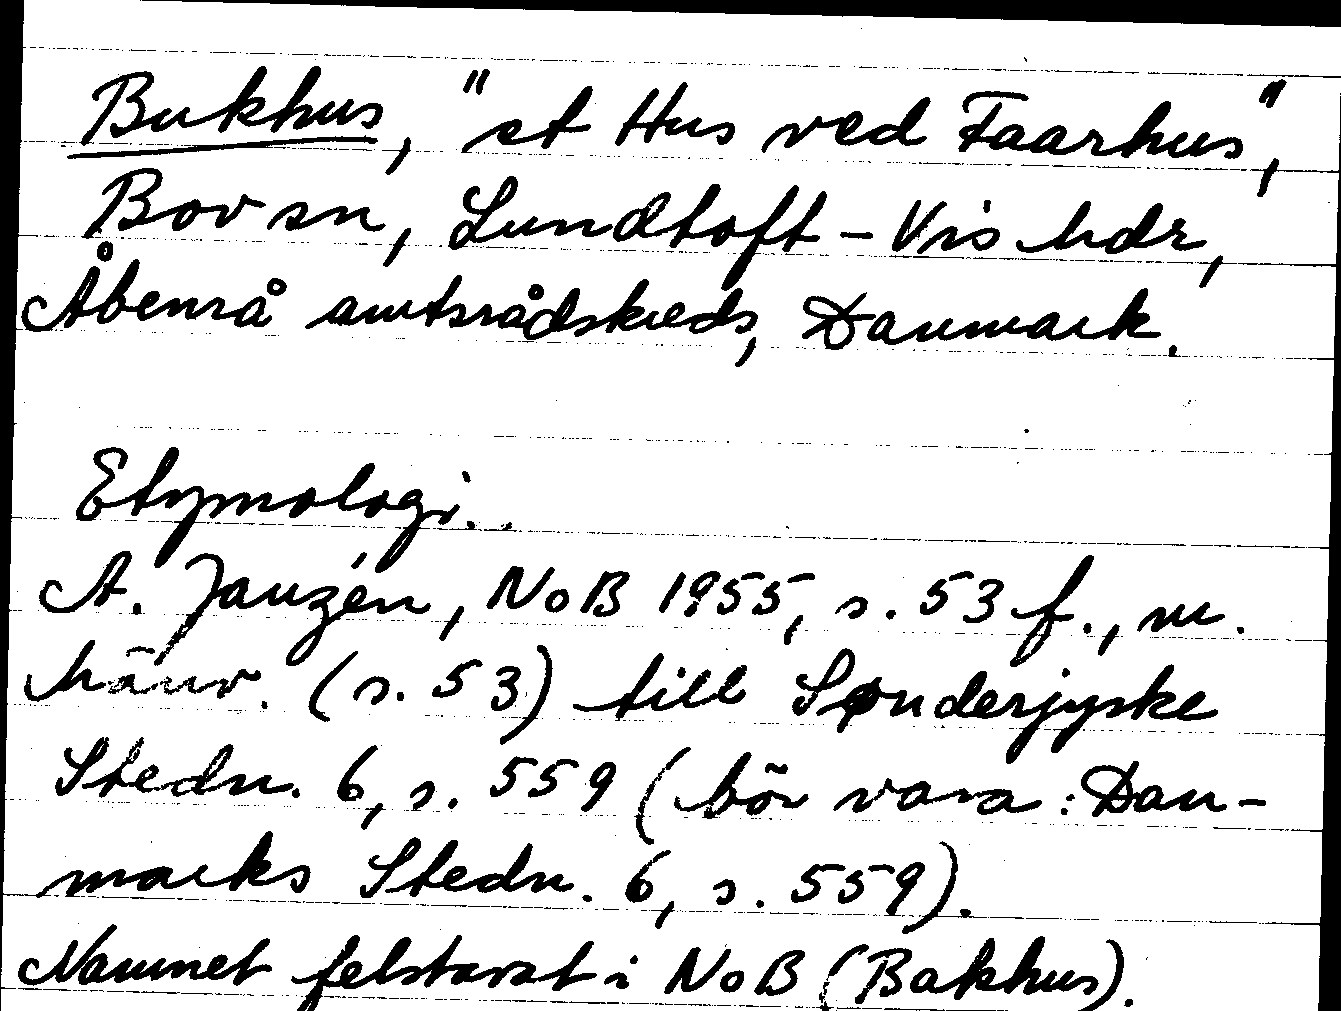 Bukhus, "et Hus ved Faarhus",
Bov sn, Lundtoft-Vis hdr,
Åbenrå amtsrådskreds, Danmark.
Etymologi.
A. Janzén, NoB 1955, s. 53 f., m.
hänv. (s. 53) till Sønderjyske
Stedn. 6, s. 559 (bör vara: Dan-
marks Stedn. 6, s. 559).
Namnet felstavat i NoB (Bakhus).